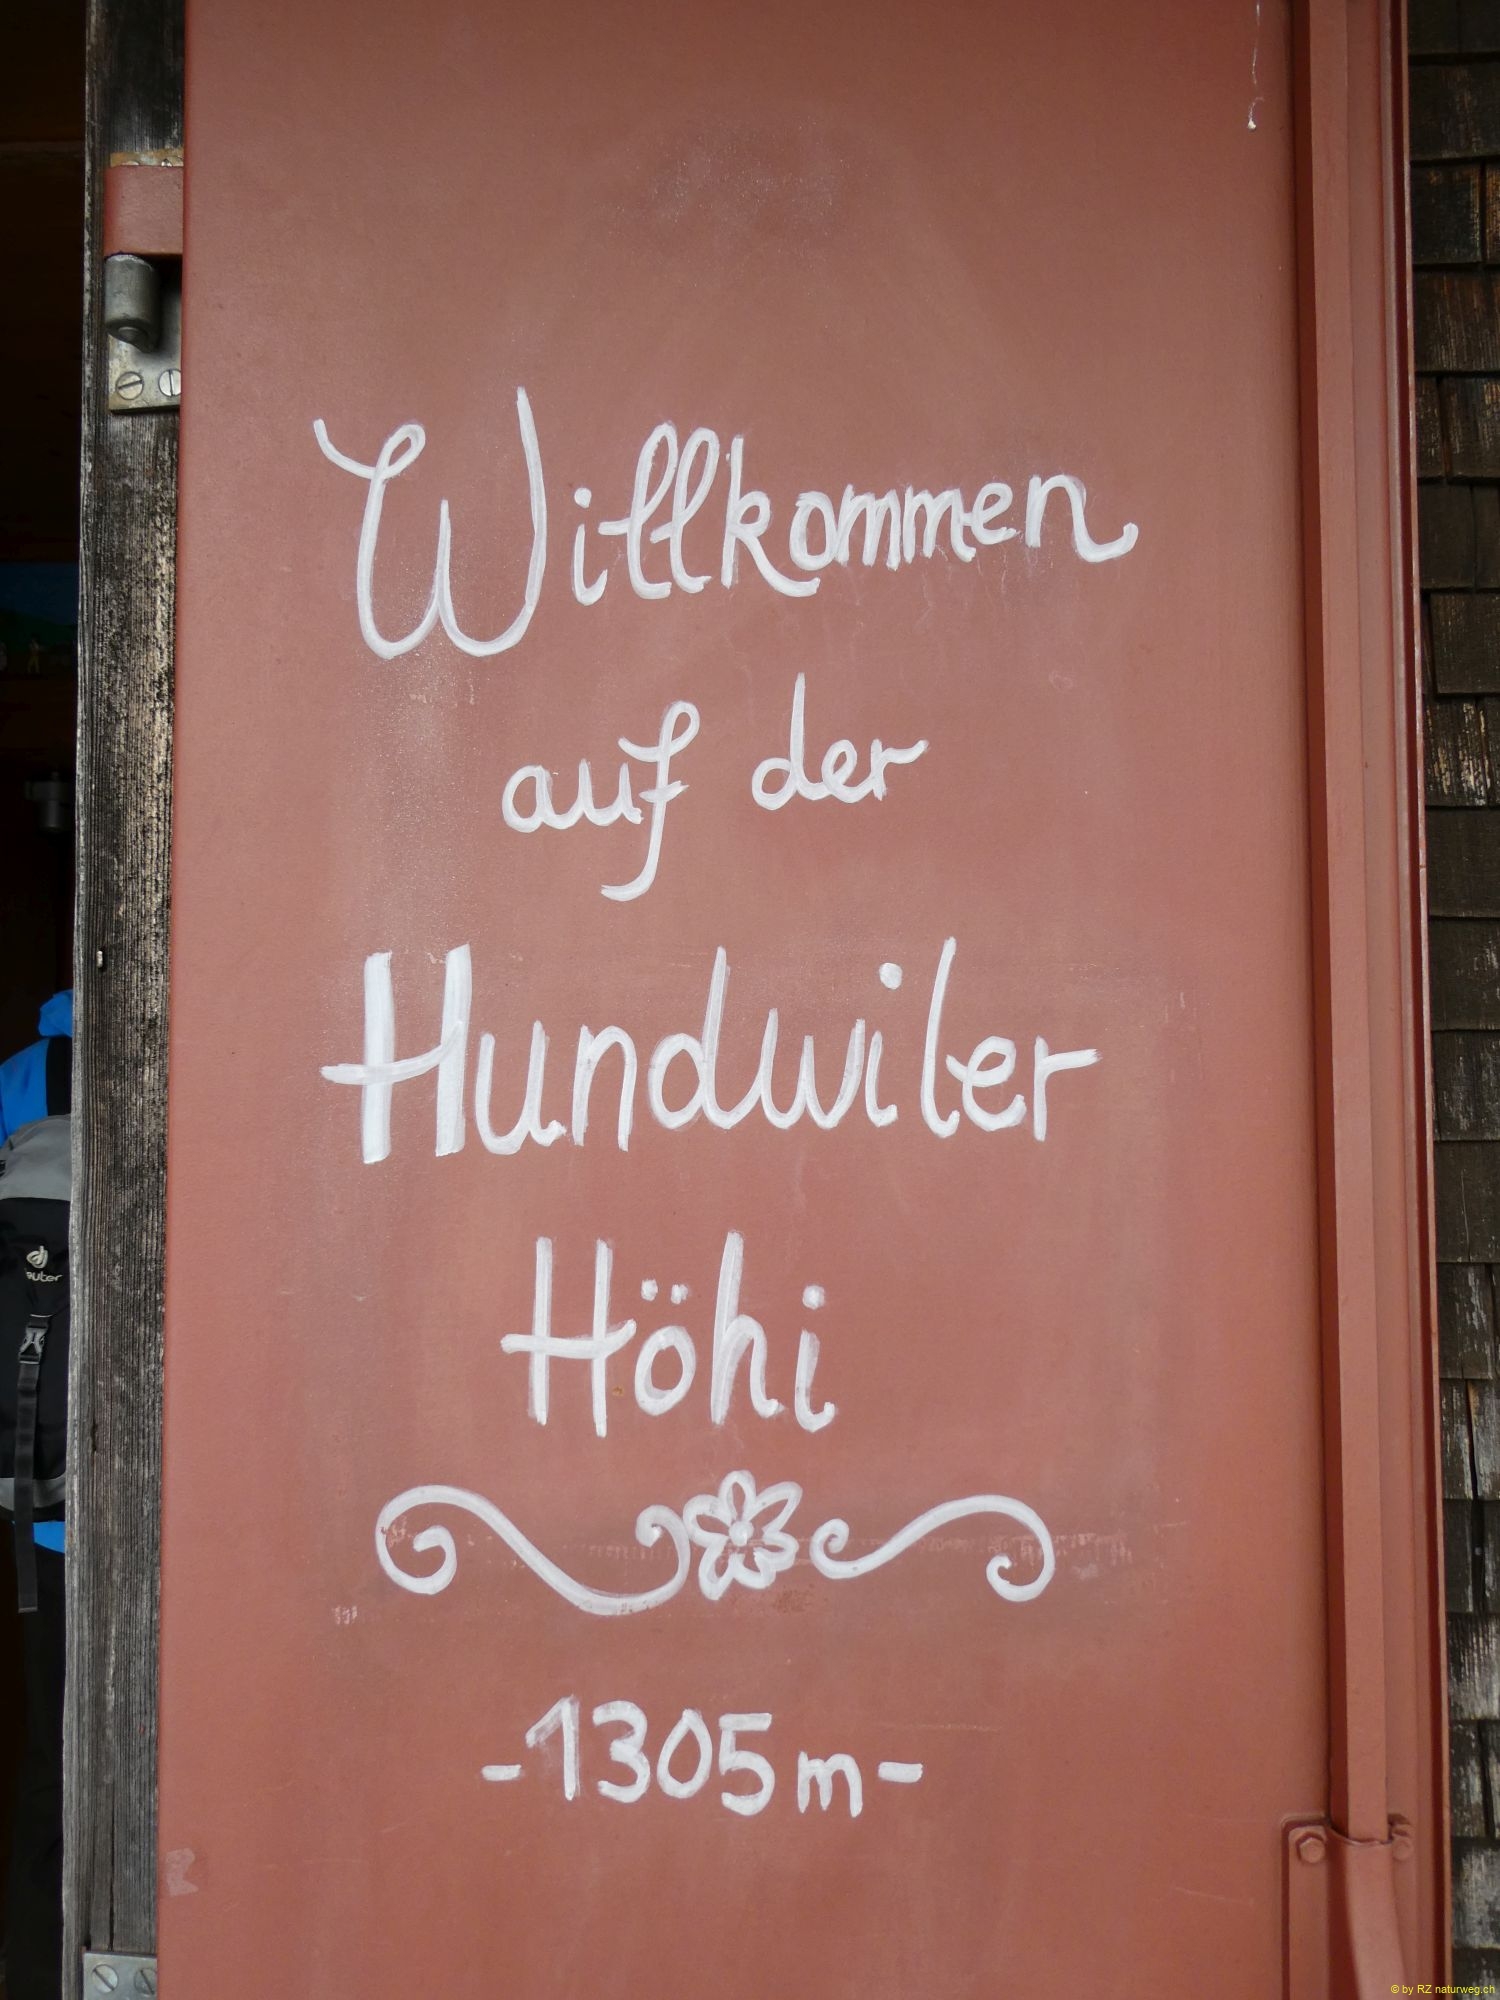 Willkommen
auf der
Hundwiler
Höhi
-1305m-
deuter
© by RZ naturweg.ch